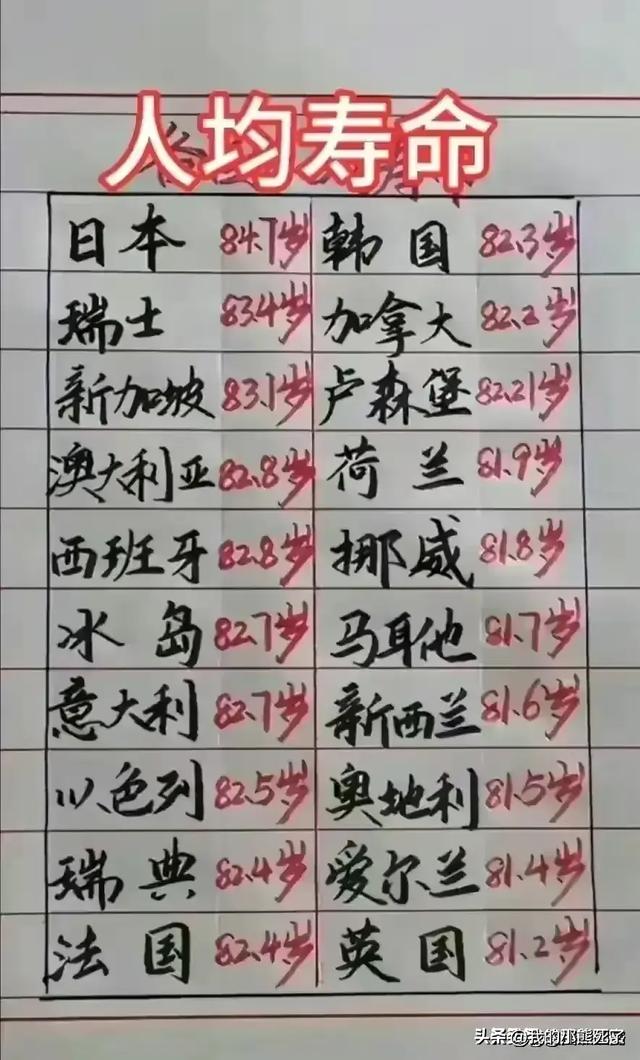 人均寿命
日本 84.7岁 韩国 82.3岁
瑞士 83.4岁 加拿大 82.2岁
新加坡 83.1岁 卢森堡 82.21岁
澳大利亚 82.8岁 荷兰 81.9岁
西班牙 82.8岁 挪威 81.8岁
冰岛 82.7岁 马耳他 81.7岁
意大利 82.7岁 新西兰 81.6岁
以色列 82.5岁 奥地利 81.5岁
瑞典 82.4岁 爱尔兰 81.4岁
法国 82.4岁 英国 81.2岁
头条 @我的那熊死了